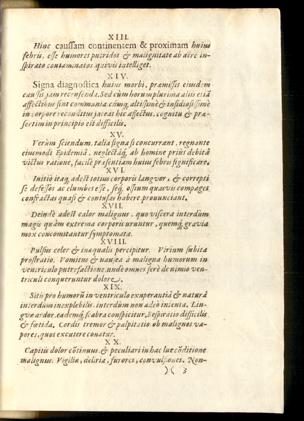 XIII.
Hinc caussam continentem & proximam huius
febris, esse humores putridos & malignitate ab aëre in-
spirato contaminatos quivis intelliget.
XIV.
Signa diagnostica huius morbi, præmissis eiusdem
caussis jam recensend. Sed cum horum plurima alijs etiã
affectibus sint communia cumq; altissimè & insidiosissimè
in corpore recubitus jaceat hic affectus, cognitu & præ-
sertim in principio est difficilis.
XV.
Verùm sciendum, talia signa si concurrant, regnante
ejusmodi Epidemiâ, neglectáq; ab homine priùs debitâ
victus ratione, facilè præsentiam huius febris significare.
XVI.
Initio itaq; adest totius corporis languor, & correpti
se defessos ac elumbes esse, seq; ossium quasvis compages
confractas quasi & contusas habere pronunciant.
XVII.
Deinde adest calor malignus, quo viscera interdum
magis quàm extrema corporis uruntur, quemq; gravia
mox concomitantur symptomata.
XVIII.
Pulsus celer & inæqualis percipitur. Virium subita
prostratio. Vomitus & nausea à maligna humorum in
ventriculo putrefactione, unde omnes ferè de nimio ven-
triculi conqueruntur dolore.
XIX.
Sitis pro humorũ in ventriculo exuperantiâ & naturâ
interdum inexplebilis, interdum non adeò intenta. Lin-
guæ ardor, eademq; scabra conspicitur. Respiratio difficilis
& fœtida. Cordis tremor & palpitatio ob malignos va-
pores, quos excutere conatur.
XX.
Capitis dolor cõtinuus, & peculiari in hac lue cõditione
malignus. Vigiliæ, deliria, furores, convulsiones. Non-
)( 3